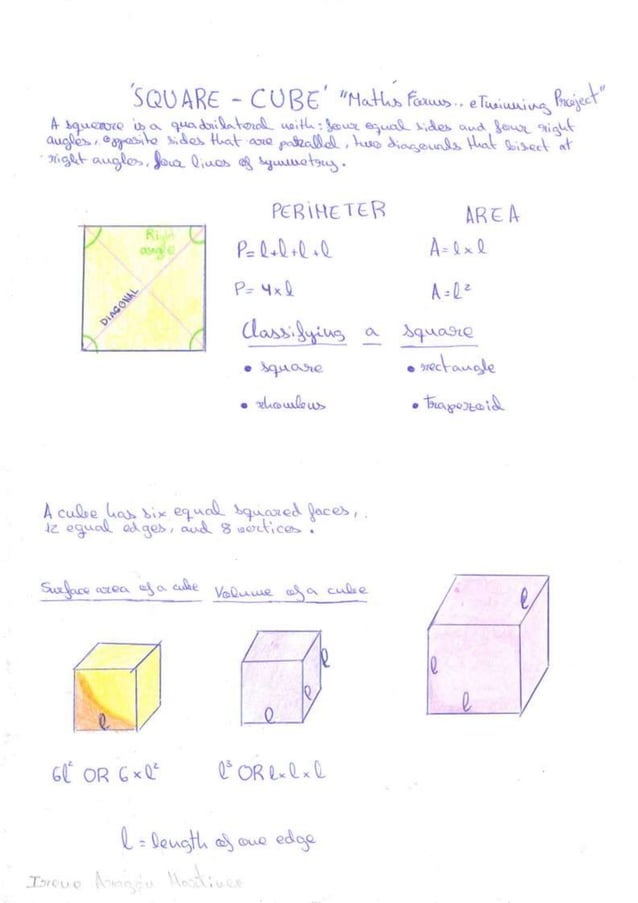 'SQUARE - CUBE' "Maths Forms.. eTwinning Project"
A squeare is a quadrilateral with: four equal sides and four right
angles, opposite sides that are parallel, two diagonals that bisect at
right angles, four lines of symmetry.
PERIMETER AREA
Right
angle
DIAGONAL
P= l+l+l+l A= l x l
P= 4 x l A= l²
Classifying a square
• square • rectangle
• rhombus • trapezoid
A cube has six equal squared faces,
12 equal edges, and 8 vertices.
Surface area of a cube Volume of a cube
l
l
l
l
l
l
l
6l² OR 6 x l² l³ OR l x l x l
l = length of one edge
Irene Aragón Martínez